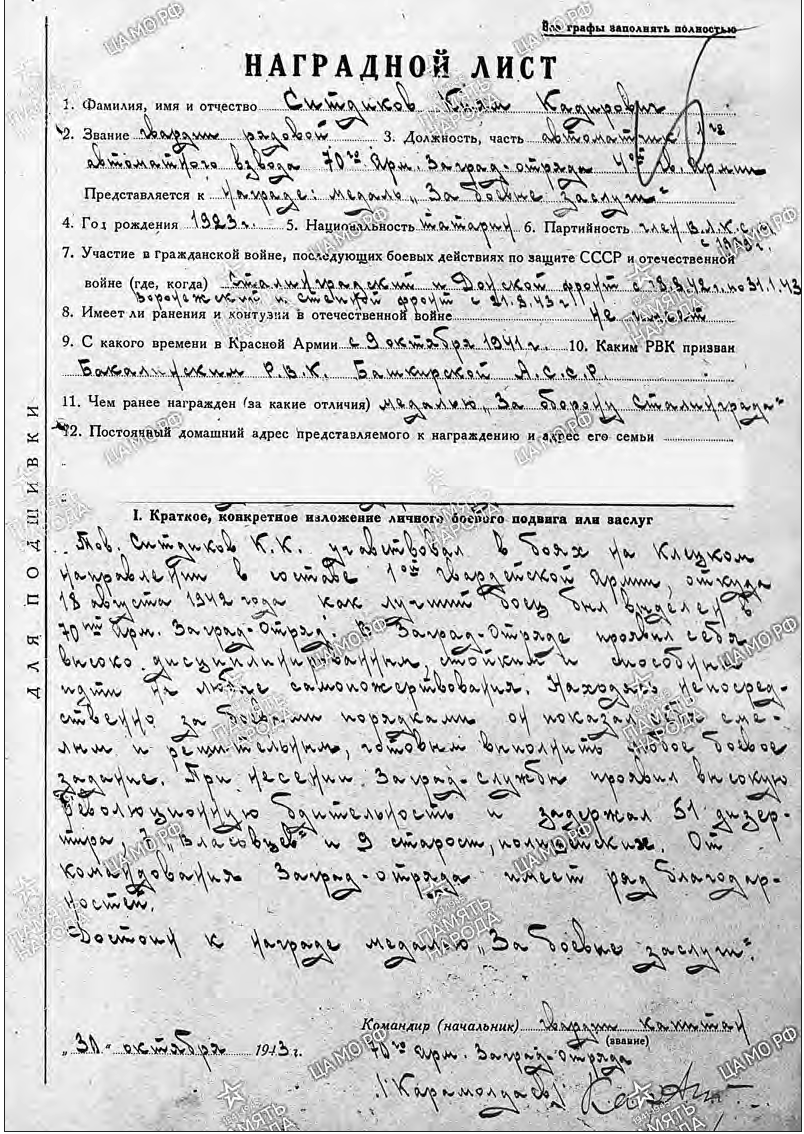 Все графы заполнять полностью
НАГРАДНОЙ ЛИСТ
1. Фамилия, имя и отчество Ситдиков Киям Кадирович
2. Звание гвардии рядовой 3. Должность, часть автоматчик 1го
автоматного взвода 70го Арм. Заград-отряда 4ой гв. Армии
Представляется к награде: медаль „За боевые заслуги"
4. Год рождения 1923 г. 5. Национальность татарин 6. Партийность член В.Л.К.С.М
с 1949 г.
7. Участие в гражданской войне, последующих боевых действиях по защите СССР и отечественной
войне (где, когда) Сталинградский и Донской фронт с 18.8.42 г. по 31.1.43
Воронежский и степной фронт с 21.8.43 г.
8. Имеет ли ранения и контузии в отечественной войне не имеет
9. С какого времени в Красной Армии с 9 октября 1941 г. 10. Каким РВК призван
Бакалинским Р.В.К. Башкирской А.С.С.Р.
11. Чем ранее награжден (за какие отличия) медалью „За оборону Сталинграда"
12. Постоянный домашний адрес представляемого к награждению и адрес его семьи
I. Краткое, конкретное изложение личного боевого подвига или заслуг
Тов. Ситдиков К.К. участвовал в боях на Клецком
направлении в составе 1ой гвардейской Армии, откуда
18 августа 1942 года как лучший боец был выделен в
70ый Арм. Заград-Отряд. В Заград-Отряде проявил себя
высоко дисциплинированным, стойким и способным
идти на любые самопожертвования. Находясь непосред-
ственно за боевыми порядками он показал себя сме-
лым и решительным, готовым выполнить любое боевое
задание. При несении Заград-службы проявил высокую
революционную бдительность и задержал 51 дизер-
тира, „Власовцев" и 9 старост, полицейских. От
командования Заград-отряда имеет ряд благодар-
ностей.
Достоин к награде медалью „За боевые заслуги".
Командир (начальник) гвардии капитан
(звание)
„30" октября 1943 г. 70го Арм. Заград-Отряда
/Карамолдаев/
ДЛЯ ПОДШИВКИ
ЦАМО РФ
ПАМЯТЬ НАРОДА